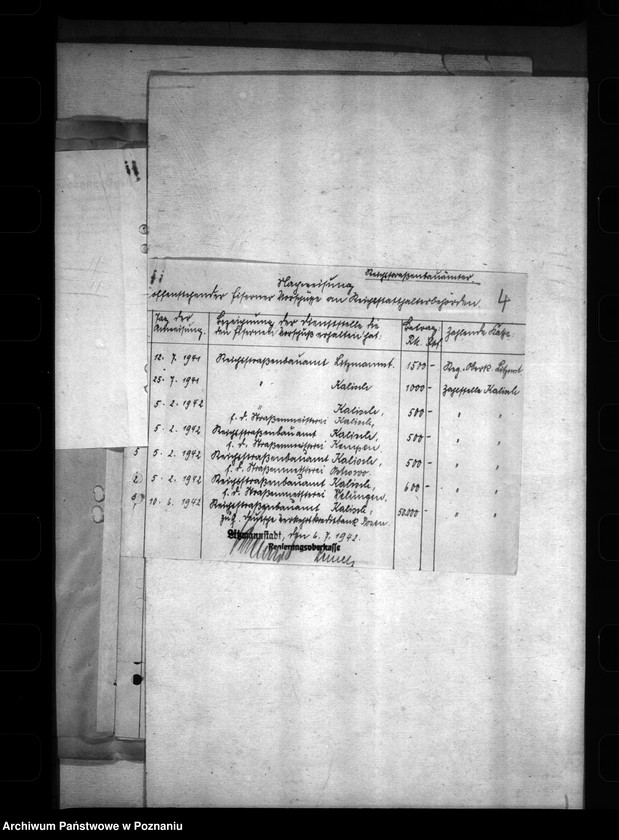 Reichsstraßenbauämter.
Nachweisung
offenstehender Eiserner Vorschüsse an Reichsstatthalterbehörden.
4
Tag der Anweisung. Bezeichnung der Dienststelle die den Eisernen Vorschuß erhalten hat: Betrag RM. Rpf Zahlende Kasse
12. 7. 1941 Reichsstraßenbauamt Litzmannst. 1500 - Reg. Oberk. Litzmst
25. 7. 1941 " Kalisch 1000 - Zahlstelle Kalisch
5. 2. 1942 " Kalisch, 500 - " "
f. d. Straßenmeisterei Kalisch,
5. 2. 1942 Reichsstraßenbauamt Kalisch, 500 - " "
f. d. Straßenmeisterei Kempen.
5. 2. 1942 Reichsstraßenbauamt Kalisch, 500 - " "
f. d. Straßenmeisterei Ostrowo.
5. 2. 1942 Reichsstraßenbauamt Kalisch, 600 - " "
f. d. Straßenmeisterei Welungen.
10. 6. 1942 Reichsstraßenbauamt Kalisch, 50000 - " "
Deutsche Verkehrskreditbank Posen
Litzmannstadt, den 6. 7. 1942.
Regierungsoberkasse
Archiwum Państwowe w Poznaniu